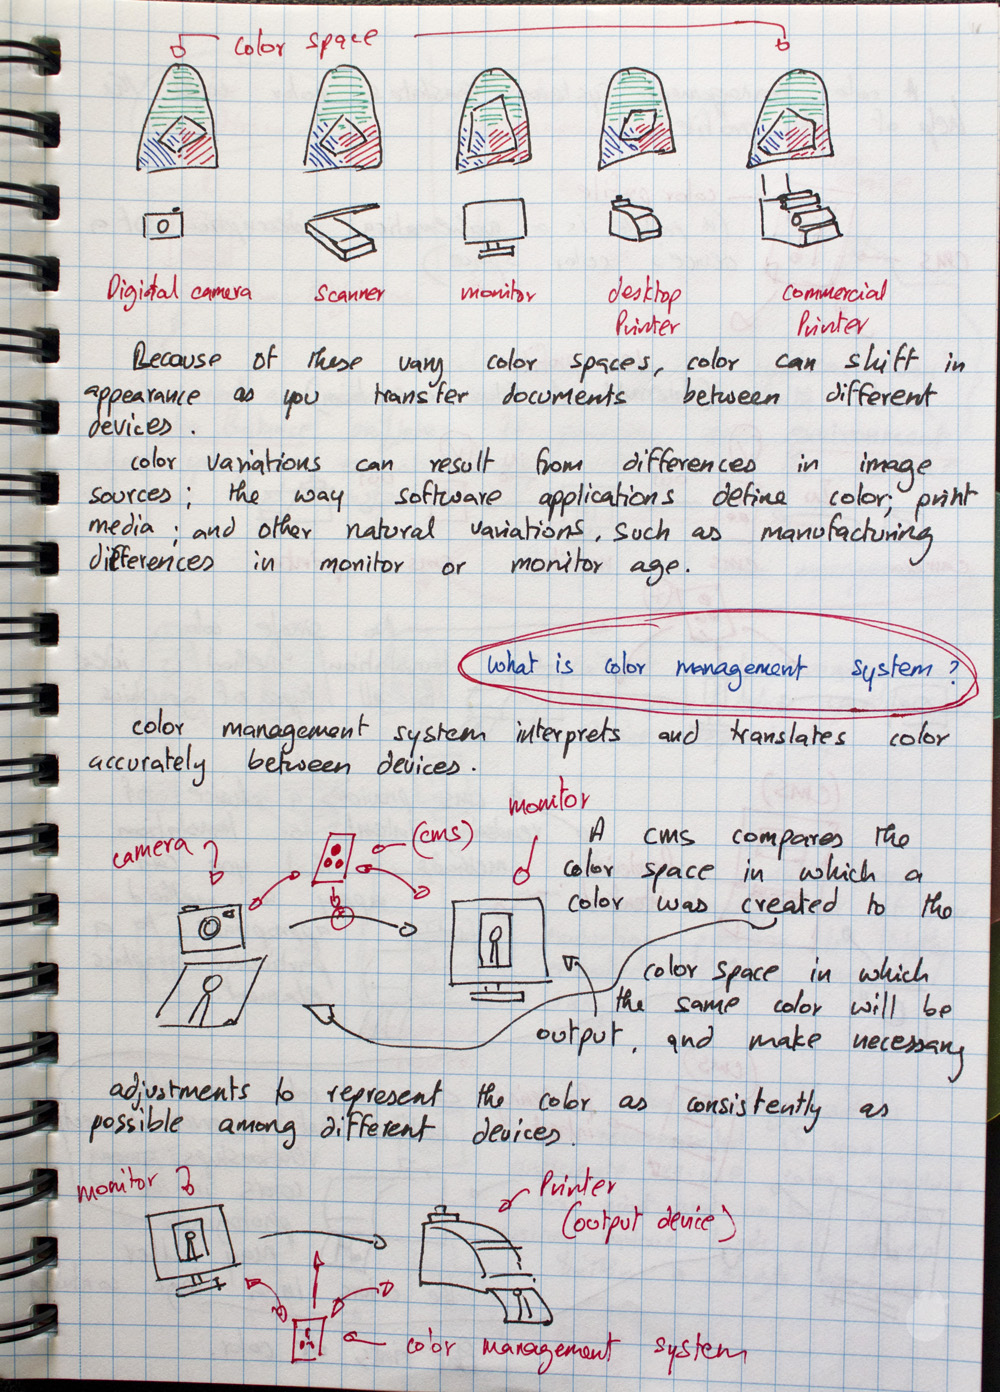 color space
Digital camera
scanner
monitor
desktop
Printer
commercial
Printer
Because of these vary color spaces, color can shift in
appearance as you transfer documents between different
devices.
color variations can result from differences in image
sources; the way software applications define color; print
media; and other natural variations, such as manufacturing
differences in monitor or monitor age.
what is color management system?
color management system interprets and translates color
accurately between devices.
monitor
camera
(cms)
A cms compares the
color space in which a
color was created to the
color space in which
the same color will be
output, and make necessary
adjustments to represent the color as consistently as
possible among different devices.
monitor
Printer
(output device)
color management system